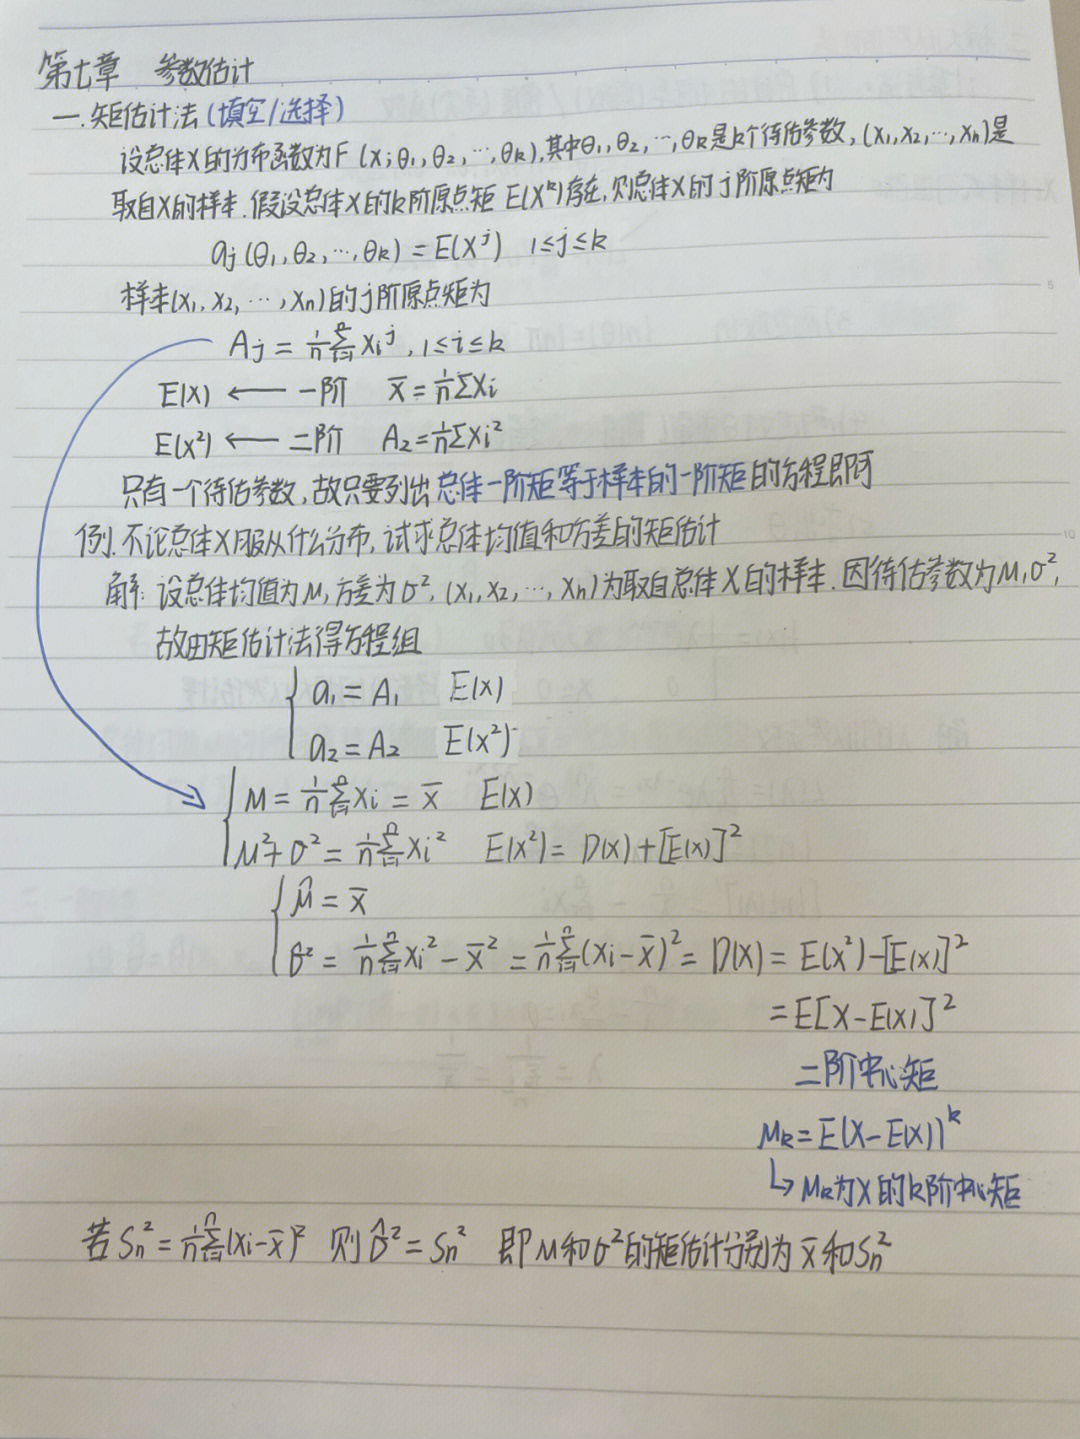 第七章 参数估计
一.矩估计法(填空/选择)
设总体X的分布函数为F(x;θ₁,θ₂,…,θk),其中θ₁,θ₂,…,θk是k个待估参数,(X₁,X₂,…,Xn)是
取自X的样本.假设总体X的k阶原点矩 E(X^k)存在,则总体X的j阶原点矩为
aj(θ₁,θ₂,…,θk)=E(X^j) 1≤j≤k
样本(X₁,X₂,…,Xn)的j阶原点矩为
Aj = 1/n Σ(i=1..n) Xi^j, 1≤i≤k
E(X) ← 一阶 x̄=1/n ΣXi
E(X²) ← 二阶 A₂=1/n ΣXi²
只有一个待估参数,故只要列出总体一阶矩等于样本的一阶矩的方程即可
例.不论总体X服从什么分布,试求总体均值和方差的矩估计
解:设总体均值为μ,方差为σ²,(X₁,X₂,…,Xn)为取自总体X的样本.因待估参数为μ,σ²,
故由矩估计法得方程组
{ a₁=A₁ E(X)
a₂=A₂ E(X²)
{ μ=1/n Σ(i=1..n) Xi = x̄ E(X)
μ²+σ²=1/n Σ(i=1..n) Xi² E(X²)=D(X)+[E(X)]²
{ μ̂=x̄
σ̂²=1/n Σ(i=1..n) Xi²-x̄²=1/n Σ(i=1..n)(Xi-x̄)²=D(X)=E(X²)-[E(X)]²
=E[X-E(X)]²
二阶中心矩
μk=E(X-E(X))^k
↳μk为X的k阶中心矩
若Sn²=1/n Σ(i=1..n)(Xi-x̄)² 则σ̂²=Sn² 即μ和σ²的矩估计分别为x̄和Sn²